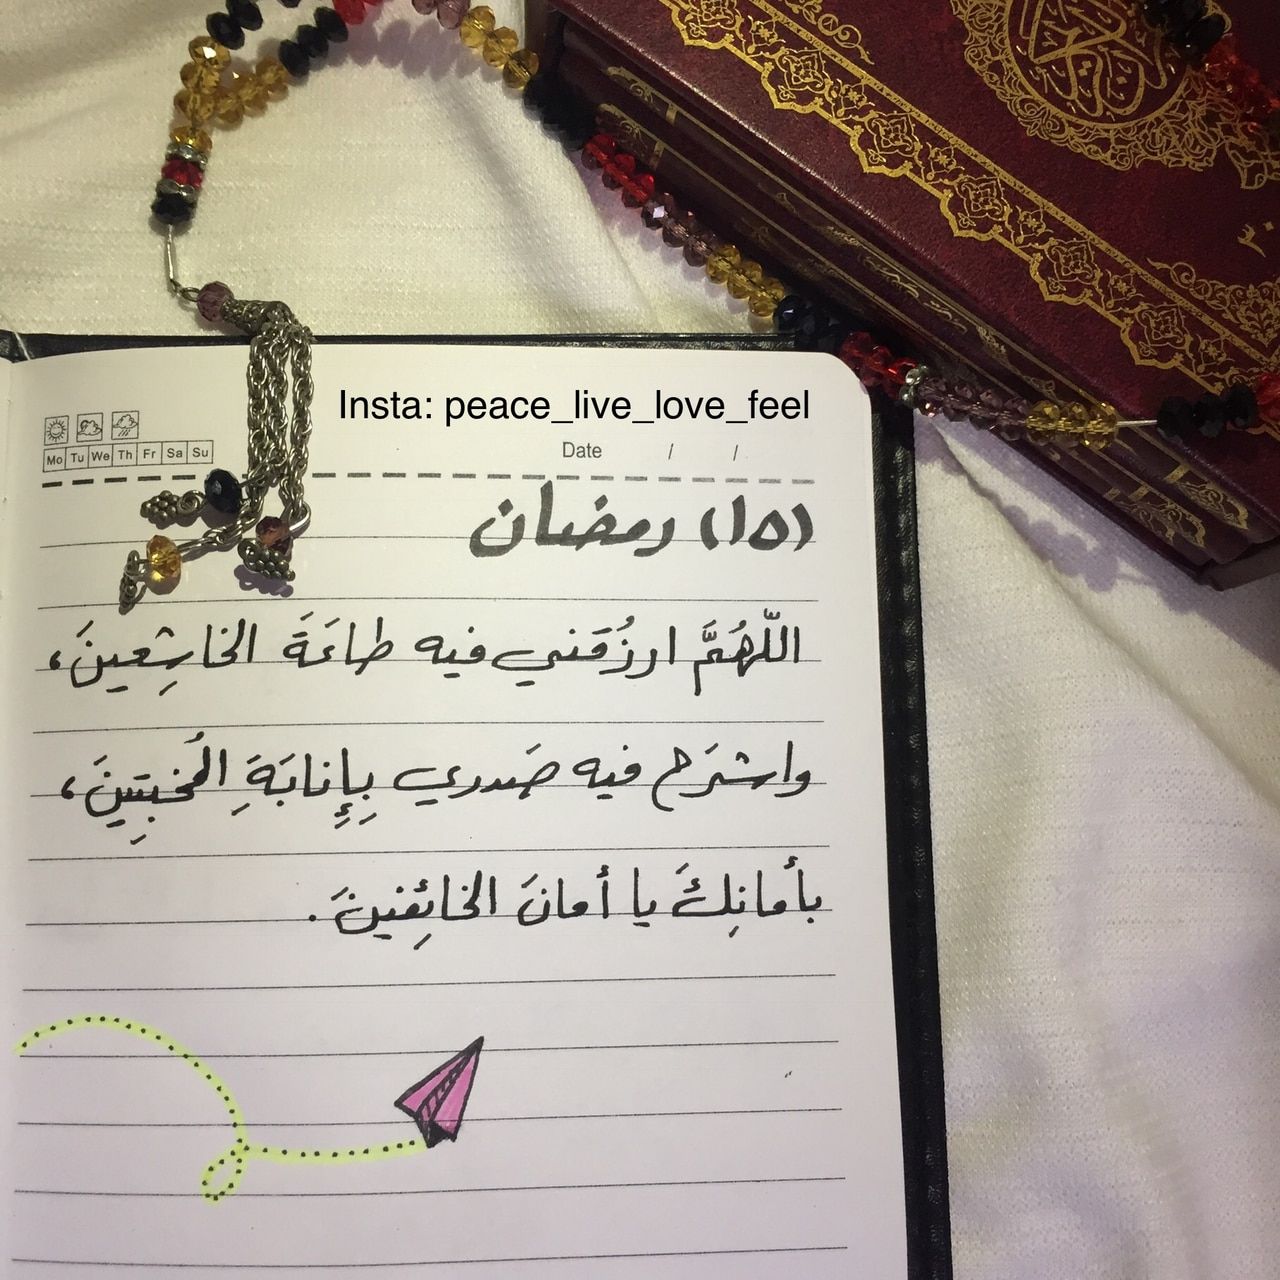 Insta: peace_live_love_feel
Mo Tu We Th Fr Sa Su
Date / /
(١٥) رمضان
اللّهُمَّ ارزُقَني فيه طاعَةَ الخاشِعينَ،
واشرَح فيه صَدري بِإِنابَةِ المُخبِتينَ،
بأمانِكَ يا أمانَ الخائِفينَ.
٣٠